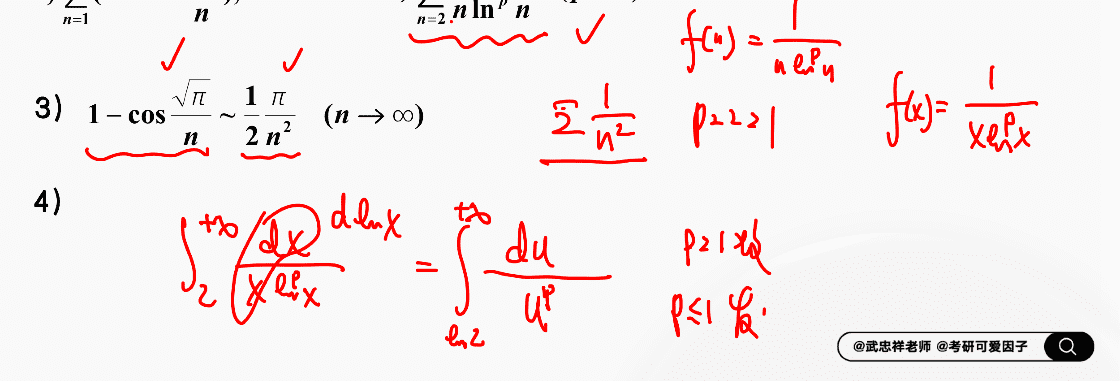 n=1 n
n=2 n lnᵖ n ✓
f(n) = 1/(n lnᵖ n)
✓ ✓
3) 1 − cos √π/n ~ 1/2 π/n² (n → ∞)
Σ 1/n² p=2>1
f(x) = 1/(x lnᵖ x)
4)
∫₂^{+∞} dx/(x lnᵖ x) d ln x = ∫_{ln2}^{+∞} du/uᵖ
p>1 收
p≤1 发
@武忠祥老师 @考研可爱因子